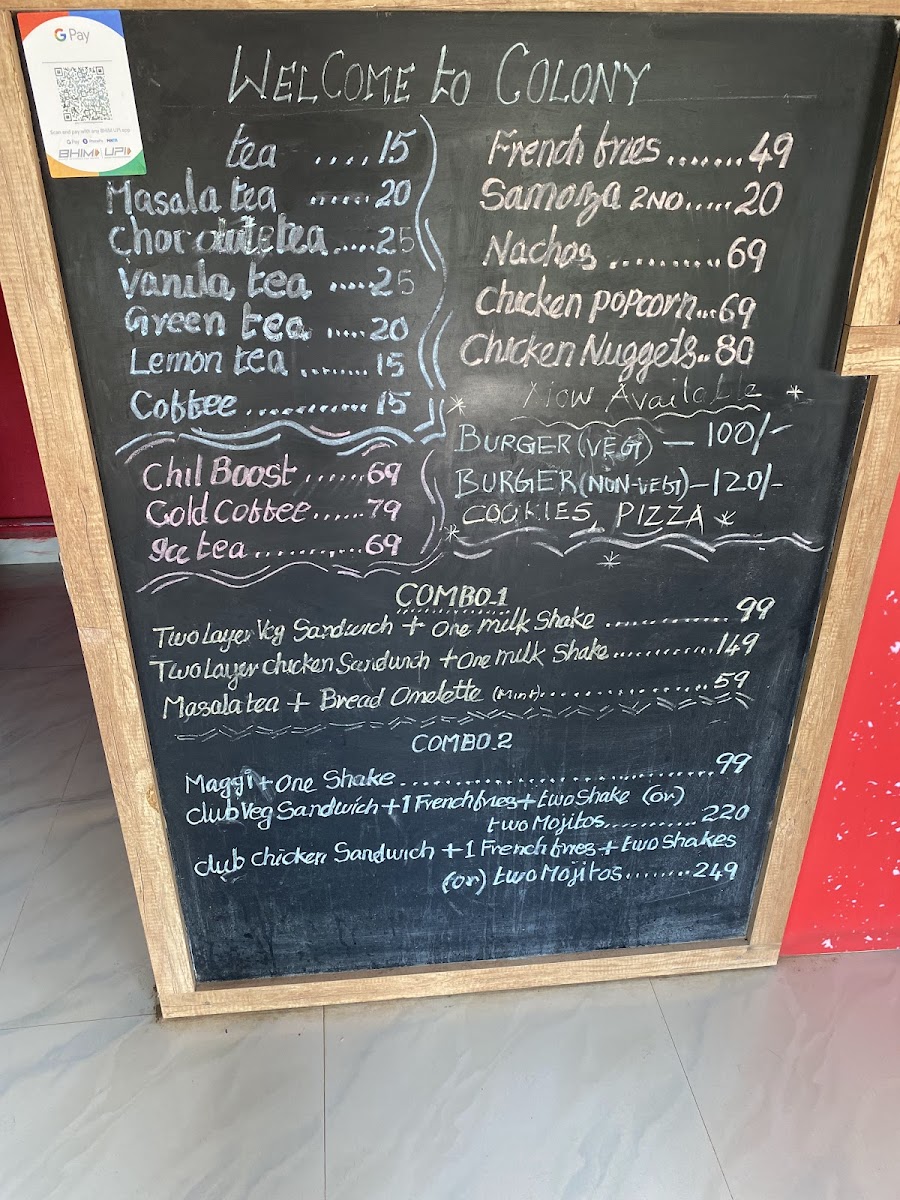 G Pay
Scan and pay with any BHIM UPI app
G Pay PhonePe Paytm
BHIM UPI
WELCOME to COLONY
tea .... 15
Masala tea ...... 20
Chocolate tea ..... 25
Vanila tea ..... 25
Green tea ..... 20
Lemon tea ........ 15
Coffee ............ 15
Chil Boost ...... 69
Cold Coffee ...... 79
Ice tea ............ 69
French fries ....... 49
Samoza 2NO ..... 20
Nachos .......... 69
Chicken popcorn ... 69
Chicken Nuggets .. 80
Now Available
BURGER (VEG) — 100/-
BURGER (NON-VEG) — 120/-
COOKIES, PIZZA
COMBO.1
Two Layer Veg Sandwich + One milk Shake ............... 99
Two Layer chicken Sandwich + One milk Shake ............ 149
Masala tea + Bread Omelette (Mint) .................... 59
COMBO.2
Maggi + One Shake .................................... 99
club Veg Sandwich + 1 French fries + two Shake (or)
two Mojitos ........... 220
club chicken Sandwich + 1 French fries + two shakes
(or) two Mojitos ........ 249